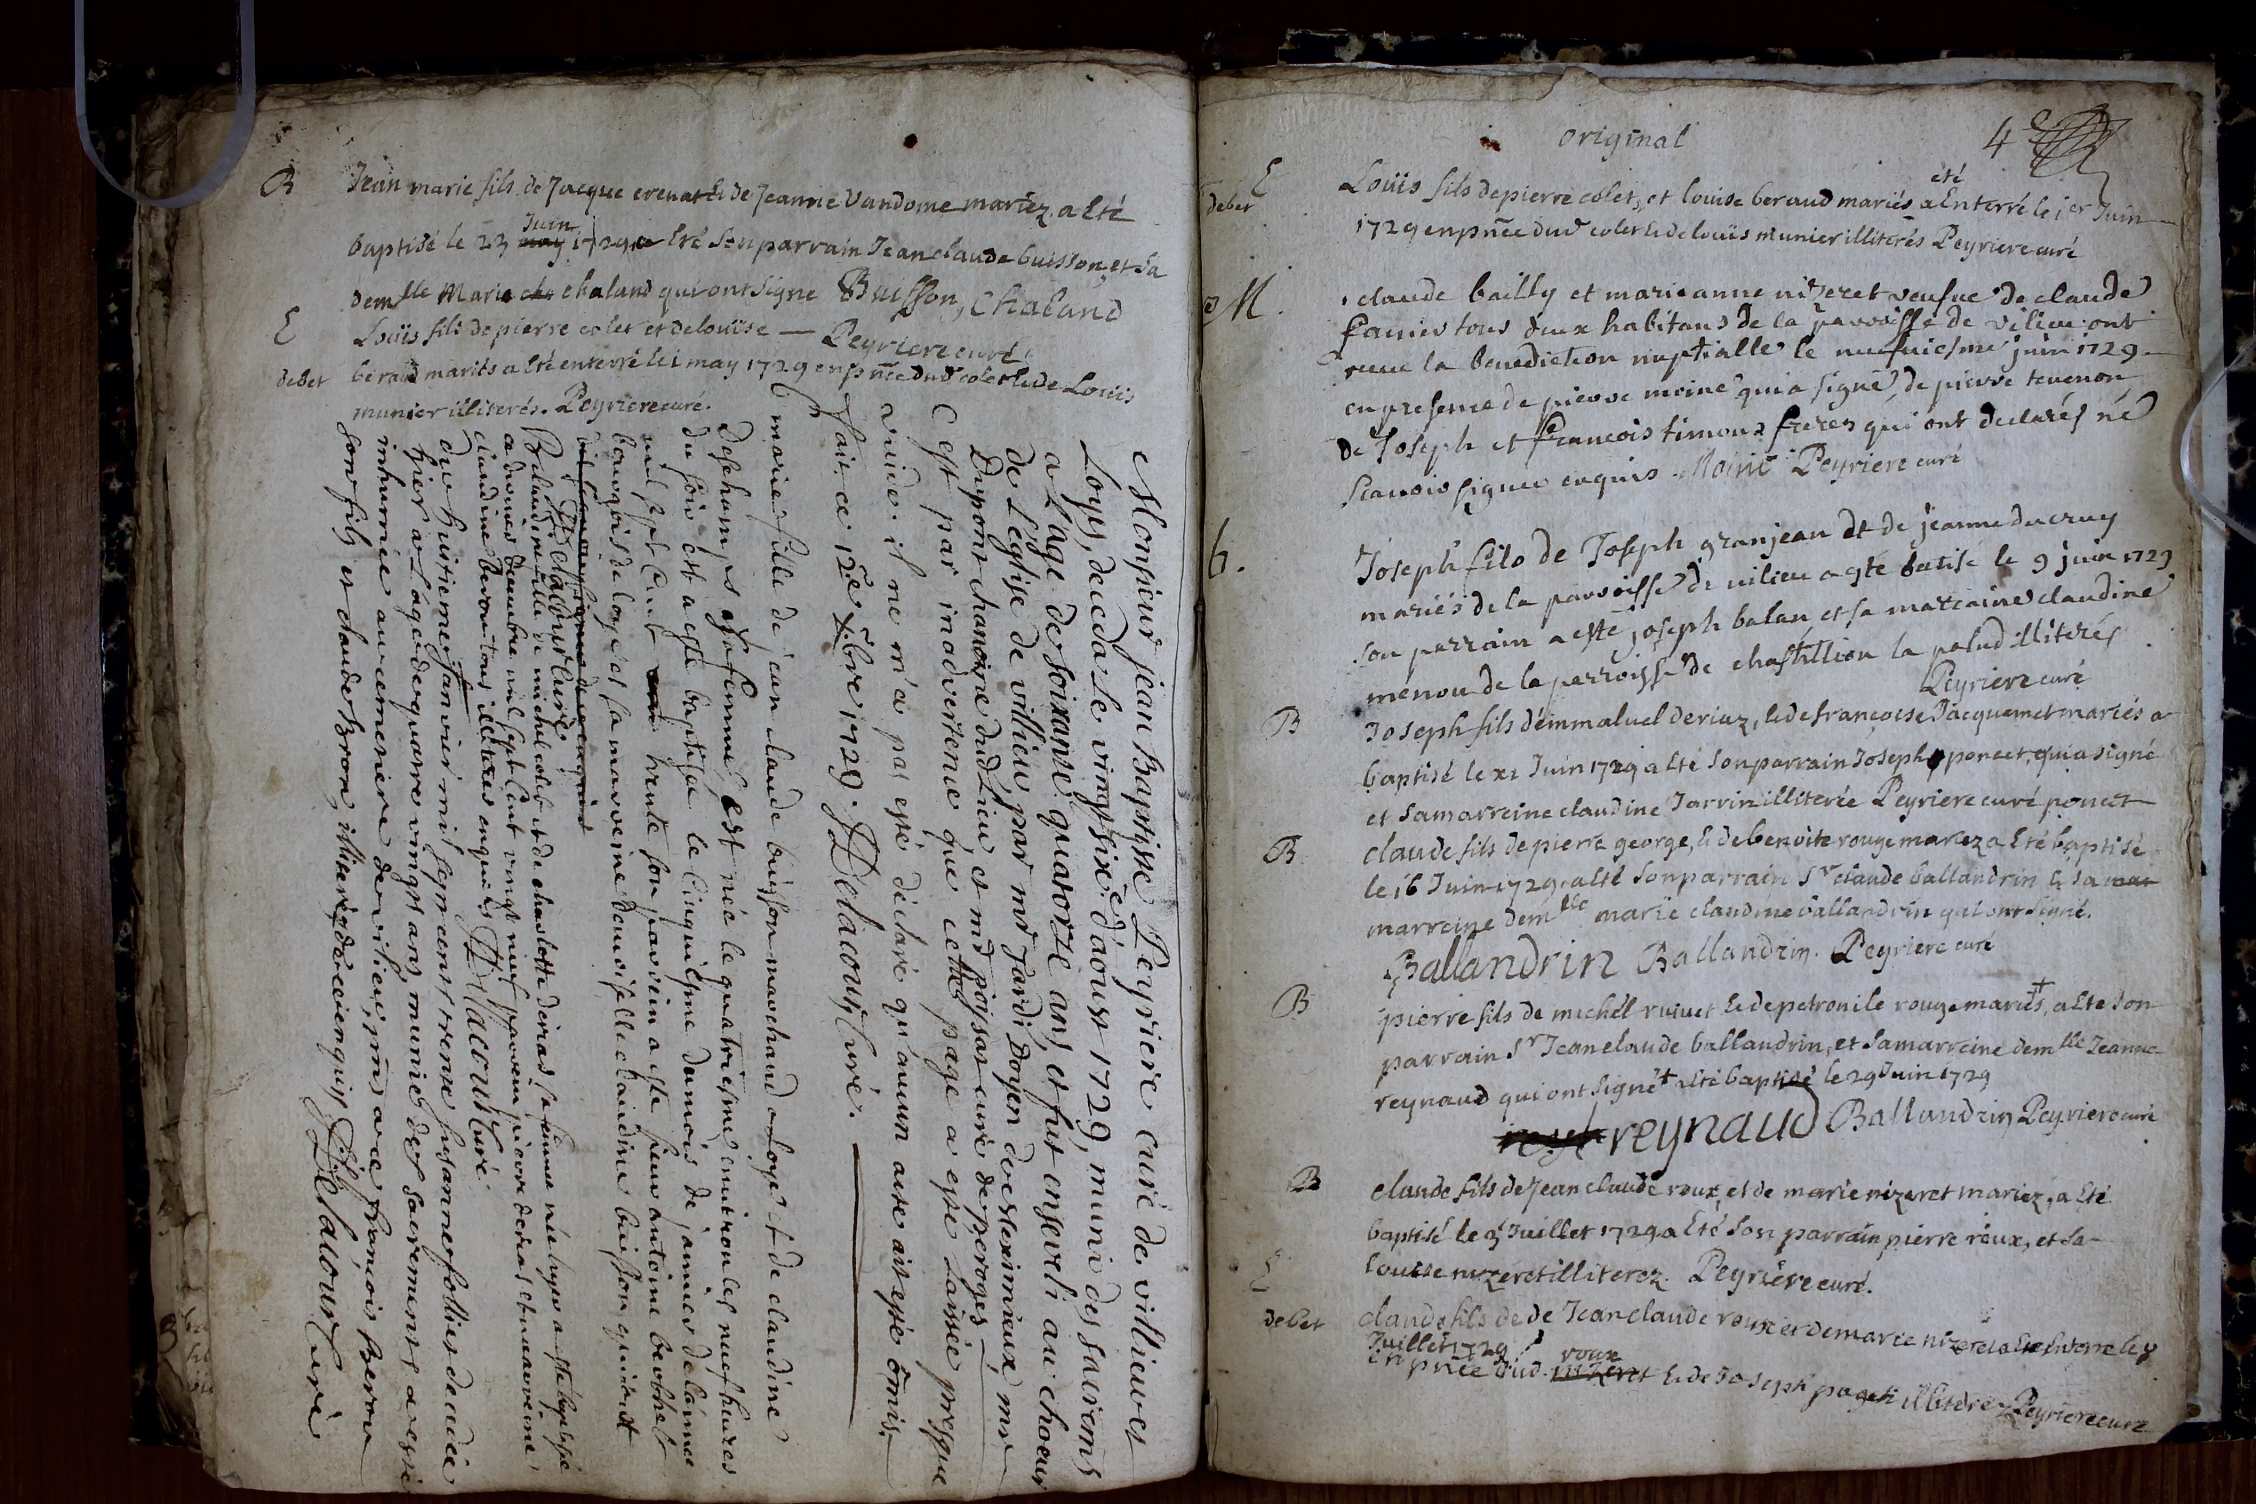 B Jean marie fils de Jacque crenat & de Jeanne Vandome mariez, a Eté
baptisé le 23 may Juin 1729, a Eté Son parrain Jean claude buisson, et Sa
demlle Marie cha chaland qui ont signe Buisson, Chaland
E Loüis fils de pierre colet et de loüise — Peyriere curé
debet beraud mariés a Eté enterré le 1 may 1729 en pñce dud colet & de Louis
munier illiterés. Peyriere curé.
Monsieur jean Baptiste Peyriere curé de villieu et
Loyes, deceda le vingt sixe d'aoust 1729, muni des sacremts
a L'age de soixante quatorze ans, et fut enseveli au choeur
de L'église de villieu par mr jardi Doyen de meximieux mr
Dupont chanoine dud Lieu et mr poisat curé de peroges —
C'est par inadvertence que cette page a esté Laissée presque
vuide. il ne m'a pas esté déclaré qu'aucun acte ait esté ômis.
Fait ce 12e Xbre 1729. Delacour Curé.
marie fille de jean claude buisson marchand a Loyes et de claudine
deschamps sa femme est née le quatriesme environ les neuf heures
du soir et a esté baptisée le cinquiesme du mois de janvier de l'année
mil sept cent trente son parrain a esté sieur antoine berthet
bourgeois de loyes et sa marreine demoiselle claudine buisson qui ont
Delacour Curé
fille de michel colet et de charlotte derias sa femme née hyer a esté baptisée
a decembre mil sept cent vingt neuf parrein pierre derias et marreine
claudine tous illiteres enquis Delacour Curé.
du huitieme janvier mil sept cent trente susanne follier decedée
hier a L'age de quatre vingts ans munie des sacrements a esté
inhumée au cemetiere de vilieu in avec francois berron
son fils et claude Brom illiterés de ce enquis Delacour Curé
original 4e
E Loüis fils de pierre colet, et louise beraud mariés a été Enterré le 1er Juin
debet 1729 en pñce dud colet & de loüis munier illiterés Peyriere curé
M. claude bailly et marie anne nizeret veufue de claude
fanier tous deux habitans de la paroisse de vilieu ont
receu la benediction nuptialle le neufuiesme juin 1729
en presence de pierre moine qui a signé, de pierre tevenon,
de Joseph et francois timous freres qui ont declarés ne
scauoir signer enquis. Moine Peyriere curé
b. Joseph fils de Joseph granjean et de jeanne ducruy
mariés de la parroisse de uilieu a esté batisé le 9 juin 1729
son parrain a esté joseph balan et sa marraine claudine
menou de la parroisse de chastillion la palud illiterés
Peyriere curé
B Joseph fils d'emmanuel deriaz, & de françoise Jacquemet mariés a
baptisé le xi Juin 1729 a Eté Son parrain Joseph poncet, qui a signé
et sa marreine claudine Jarrin illiterée Peyriere curé poncet
B claude fils de pierre george, & de benoite rouge mariez a Eté baptisé
le 16 Juin 1729, a Eté Son parrain Sr claude ballandrin & Sa mar
marreine demlle marie claudine ballandrin qui ont signé.
Ballandrin Ballandrin. Peyriere curé
B pierre fils de michel ruivet & de petronile rouge mariés +, a Eté Son
parrain Sr Jean claude ballandrin, et Sa marreine demlle Jeanne
reynaud qui ont signé + a Eté baptisé le 29 Juin 1729
reynaud Ballandrin Peyriere curé
B claude fils de Jean claude roux, et de marie nizeret mariez, a Eté
baptisé le 3 Juillet 1729 a Eté Son parrain pierre roux, et Sa
louise nizeret illiterez. Peyriere curé.
E
debet claude fils de de Jean claude roux et de marie nizeret a Eté Enterré le 9
Juillet 1729
En pñce dud. nizeret roux & de Joseph pageti illiterez Peyriere curé